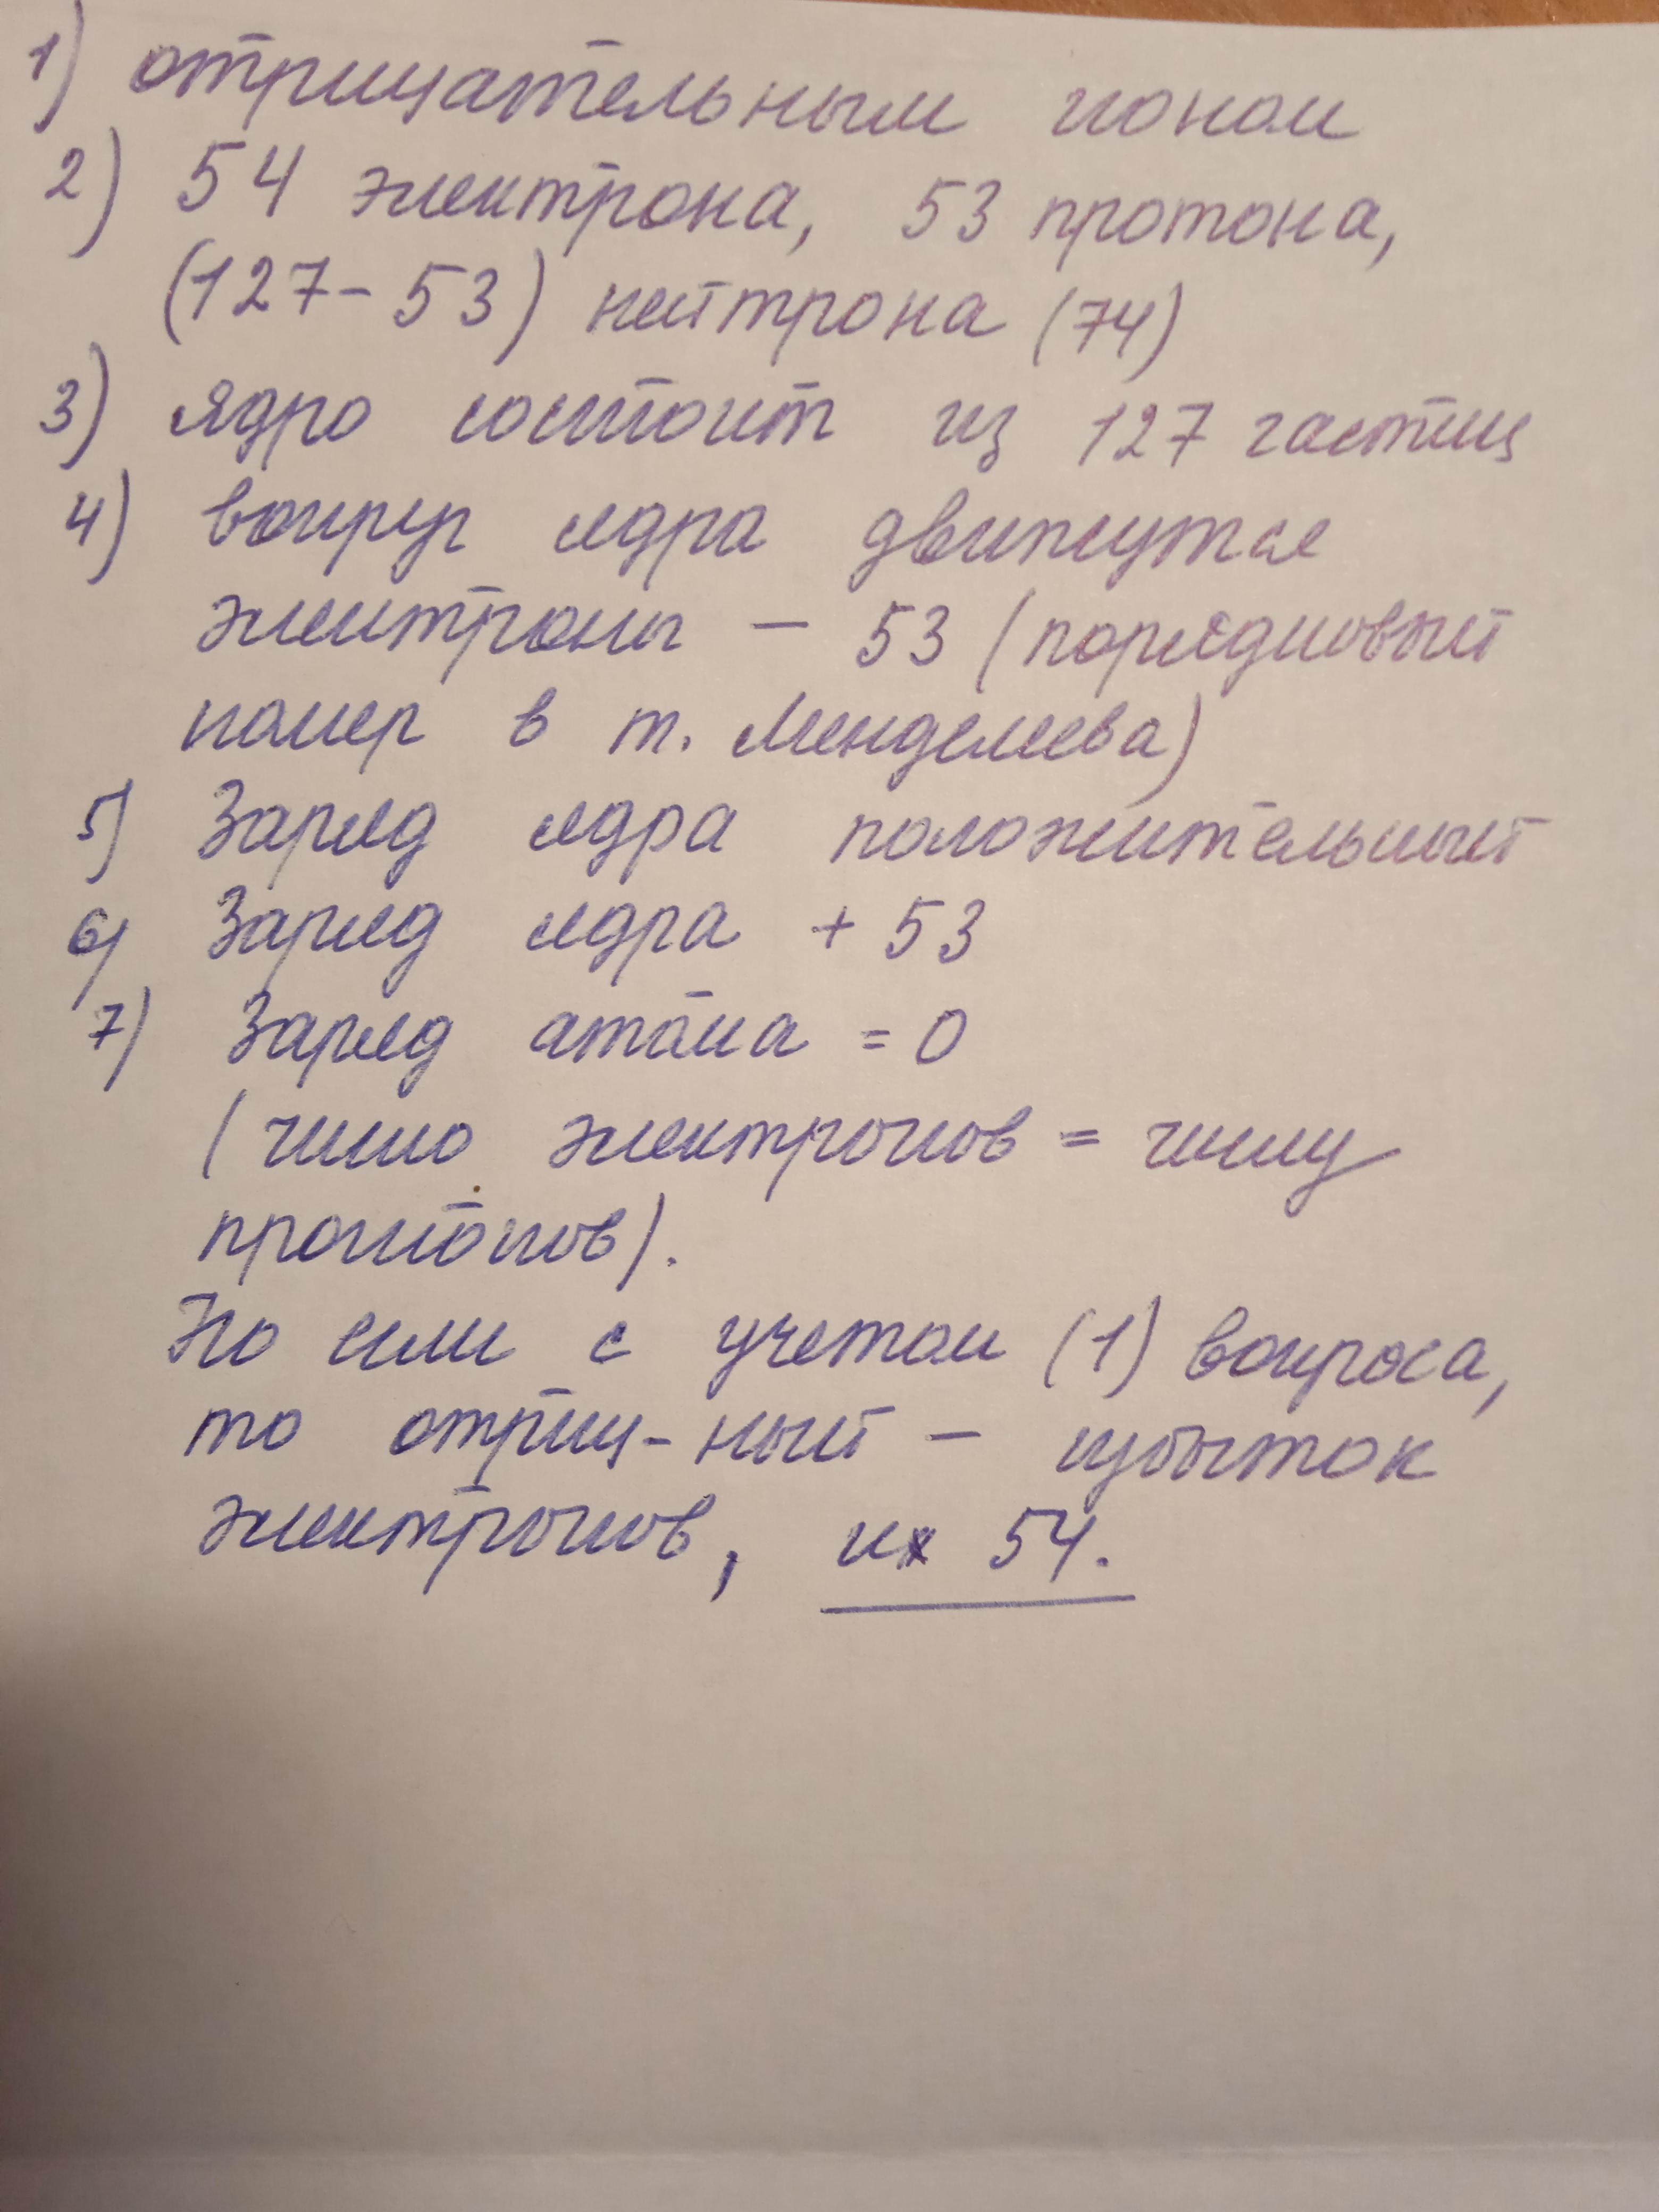 1) отрицательным ионом
2) 54 электрона, 53 протона,
(127-53) нейтрона (74)
3) ядро состоит из 127 частиц
4) вокруг ядра движутся
электроны - 53 (порядковый
номер в т. Менделеева)
5) Заряд ядра положительный
6) Заряд ядра + 53
7) Заряд атома = 0
(число электронов = числу
протонов).
Но если с учетом (1) вопроса,
то отриц-ный - избыток
электронов, их 54.